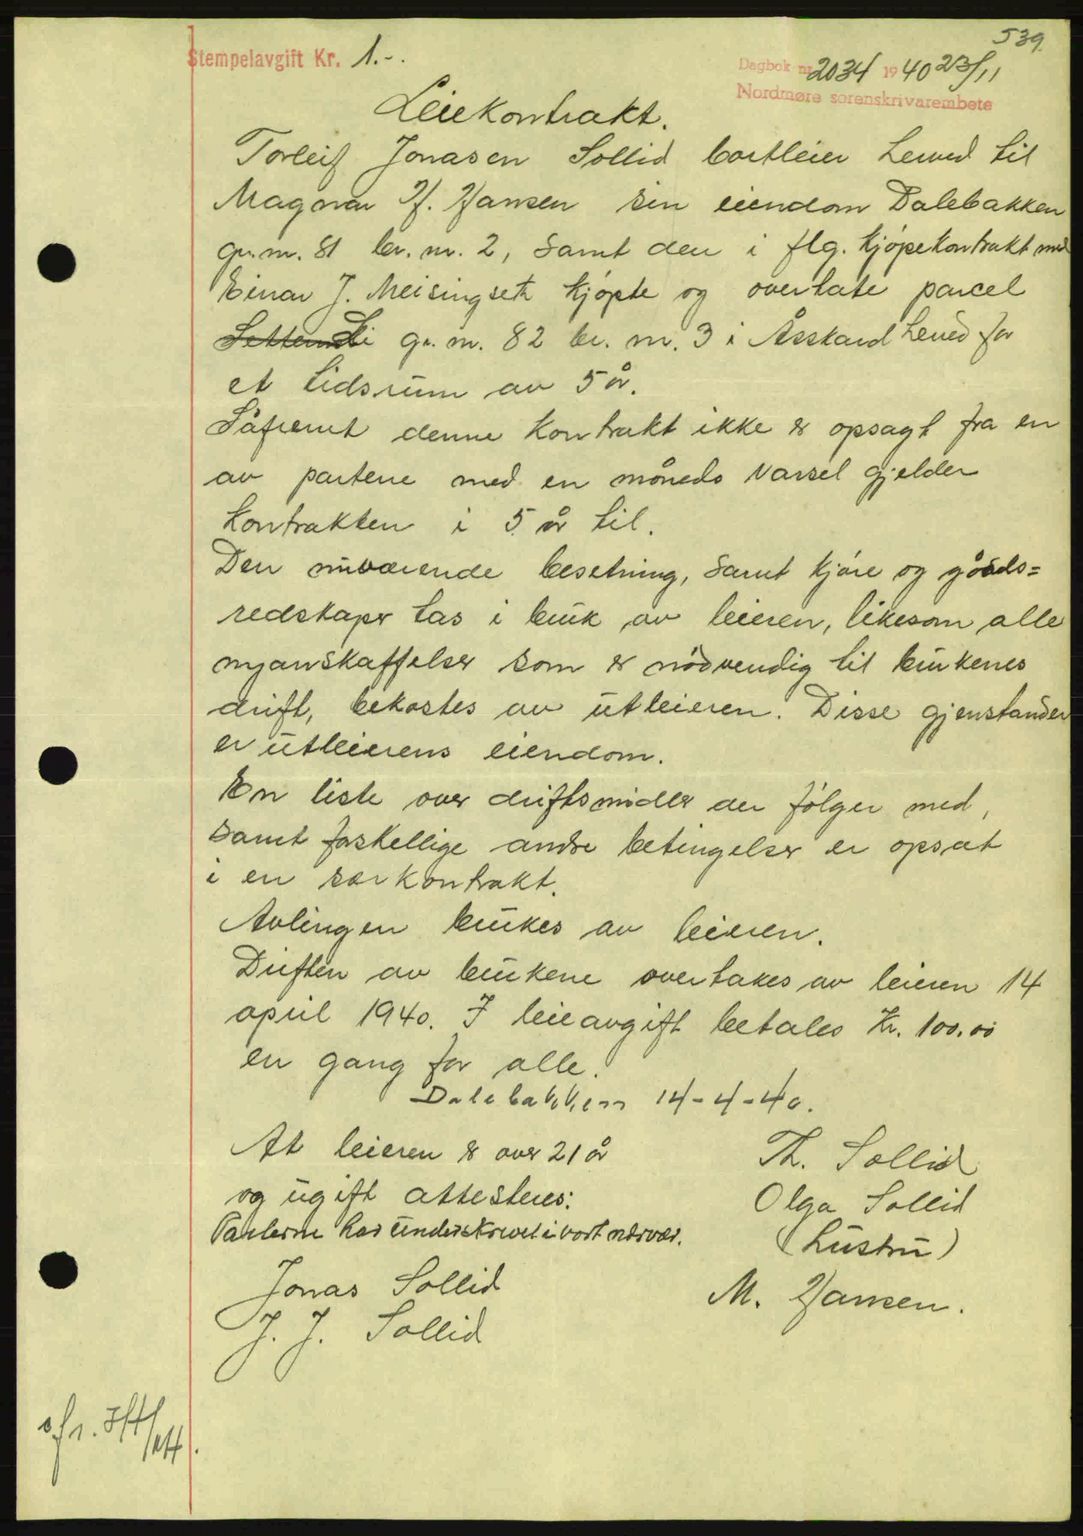 539.
Stempelavgift Kr. 1.-.
Dagbok nr. 2034 1940 23/11
Nordmøre sorenskrivarembete
Leiekontrakt.
Torleif Jonasen Sollid bortleier herved til
Magnar H. Hansen sin eiendom Dalebakken
gr. nr. 81 br. nr. 2, samt den i flg. kjøpekontrakt med
Einar J. Meisingseth kjøpte og overtate parcel
gr. nr. 82 br. nr. 3 i Åsskard herved for
et tidsrum av 5 år.
Såfremt denne kontrakt ikke er opsagt fra en
av partene med en måneds varsel gjelder
kontrakten i 5 år til.
Den nuværende besetning, samt kjøre og gårds-
redskaper tas i bruk av leieren, likesom alle
nyanskaffelser som er nødvendig til brukenes
drift, bekostes av utleieren. Disse gjenstander
er utleierens eiendom.
En liste over driftsmidler der følger med,
samt forskellige andre betingelser er opsat
i en særkontrakt.
Avlingen brukes av leieren.
Driften av brukene overtakes av leieren 14
april 1940. I leieavgift betales Kr. 100.00
en gang for alle.
Dalebakken 14-4-40.
At leieren er over 21 år
og ugift attesteres:
Parterne har underskrevet i vort nærvær.
Jonas Sollid
J. J. Sollid
Th. Sollid
Olga Sollid
(hustru)
M. Hansen.